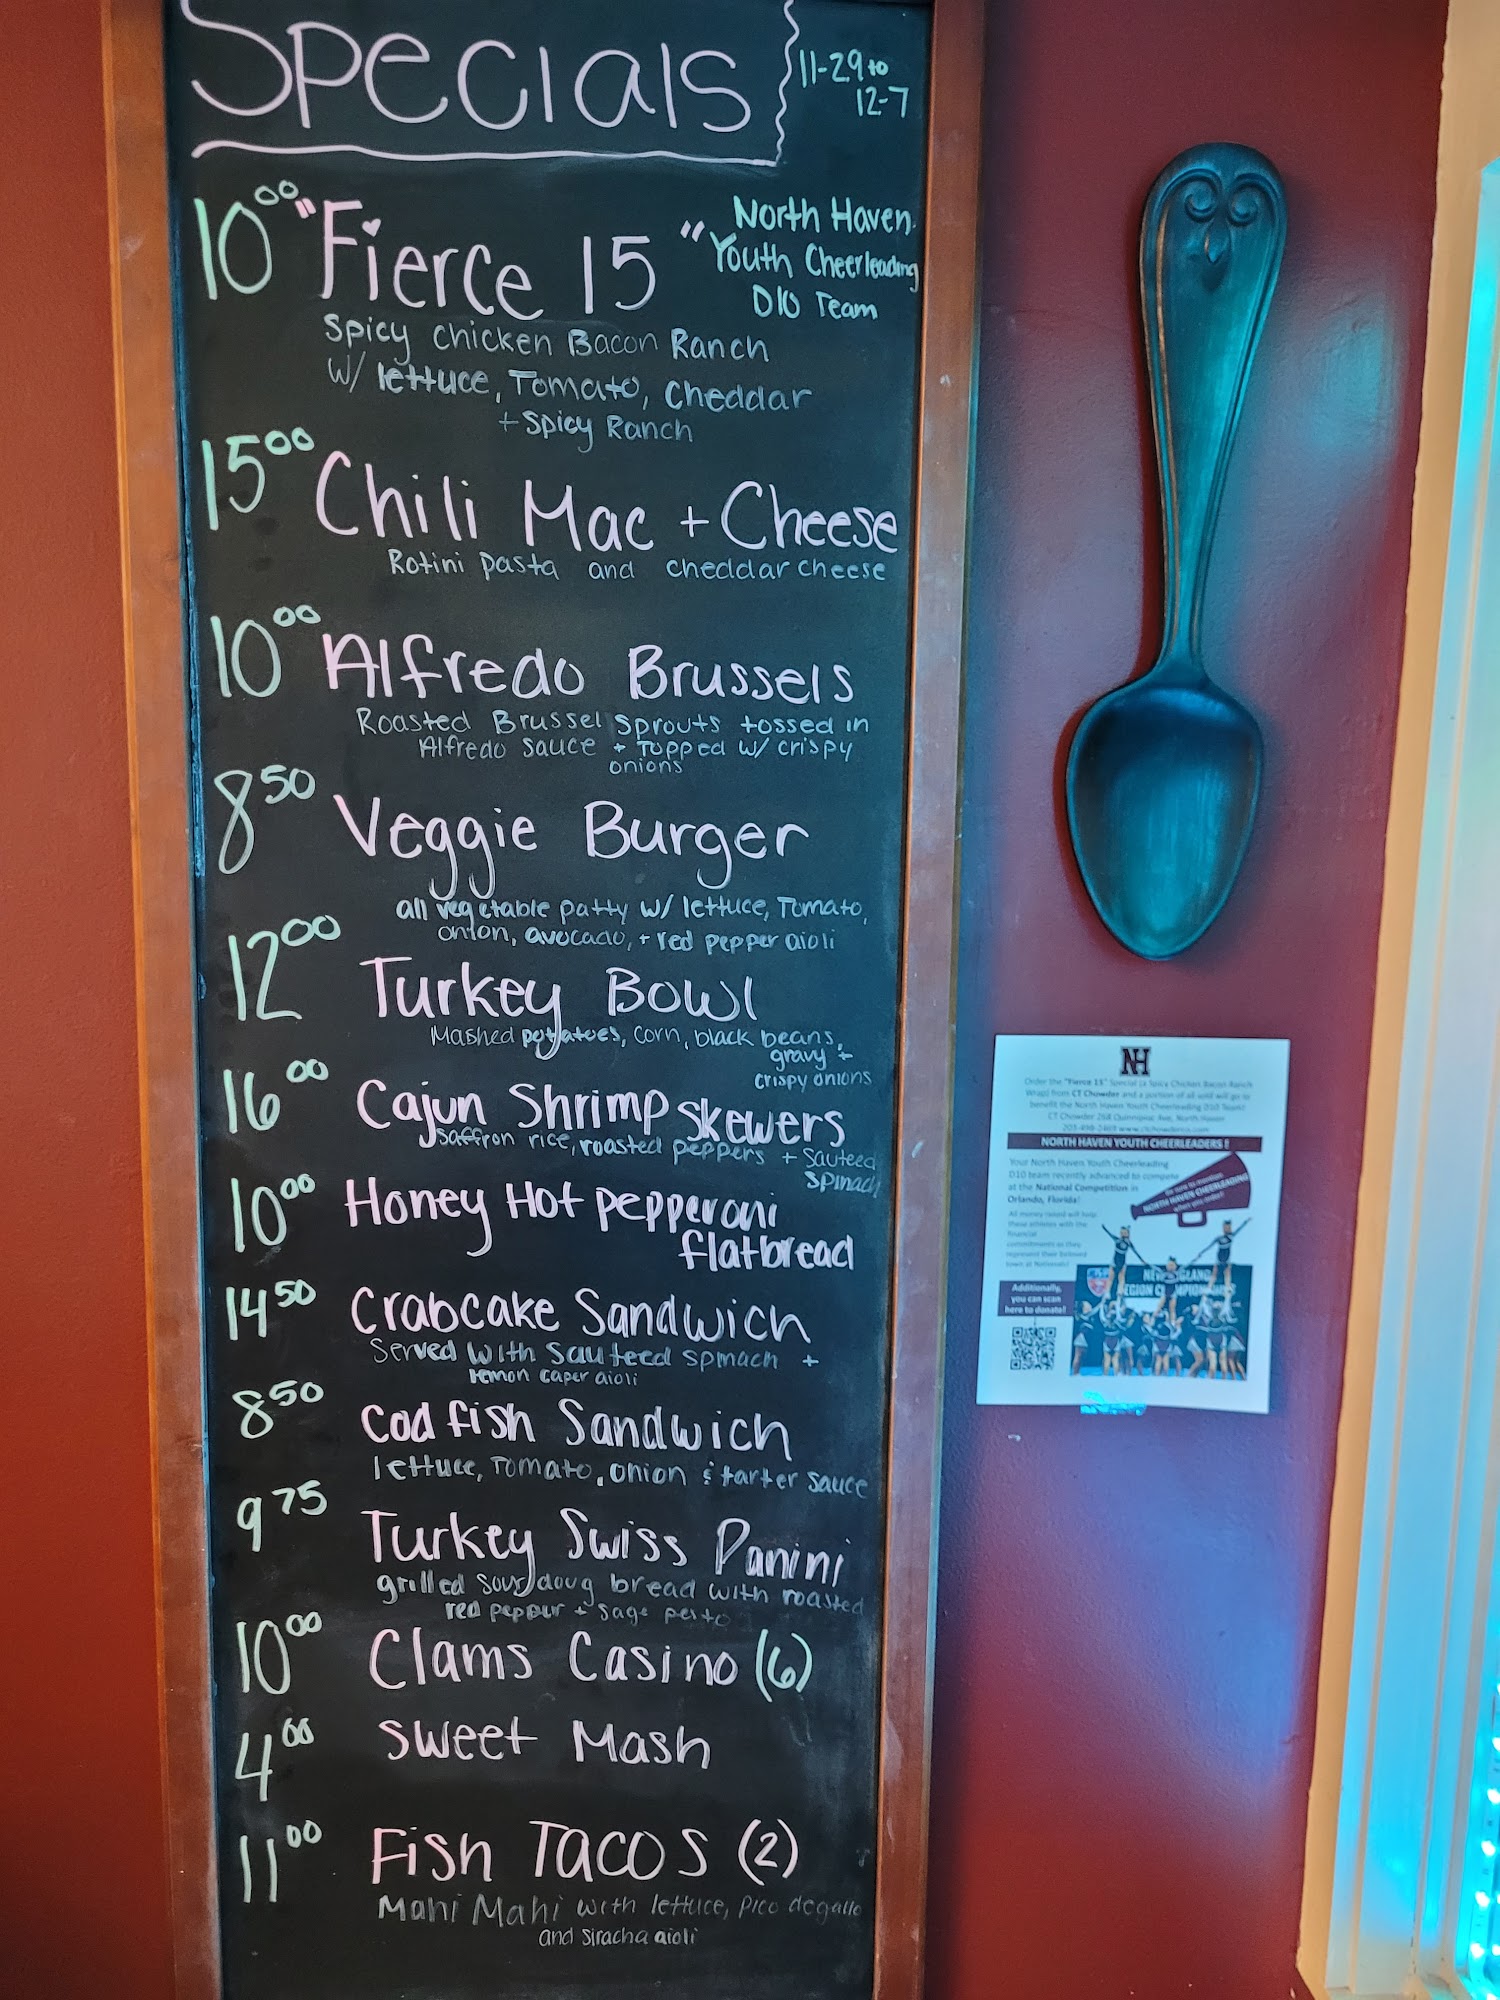 Specials
11-29 to
12-7
10⁰⁰ "Fierce 15"
North Haven
Youth Cheerleading
D10 Team
Spicy Chicken Bacon Ranch
w/ lettuce, Tomato, Cheddar
+ Spicy Ranch
15⁰⁰ Chili Mac + Cheese
Rotini pasta and cheddar cheese
10⁰⁰ Alfredo Brussels
Roasted Brussel Sprouts tossed in
Alfredo sauce + Topped w/ crispy
onions
8⁵⁰ Veggie Burger
all vegetable patty w/ lettuce, Tomato,
onion, avocado, + red pepper aioli
12⁰⁰ Turkey Bowl
Mashed potatoes, corn, black beans,
gravy +
crispy onions
16⁰⁰ Cajun Shrimp Skewers
saffron rice, roasted peppers + sauteed
spinach
10⁰⁰ Honey Hot pepperoni
flatbread
14⁵⁰ Crabcake Sandwich
Served with sauteed spinach +
lemon caper aioli
8⁵⁰ Codfish Sandwich
lettuce, Tomato, onion & tarter sauce
9⁷⁵ Turkey Swiss Panini
grilled sourdoug bread with roasted
red pepper + sage pesto
10⁰⁰ Clams Casino (6)
4⁰⁰ Sweet Mash
11⁰⁰ Fish Tacos (2)
Mahi Mahi with lettuce, pico degallo
and siracha aioli
NH
Order the "Fierce 15" Special (a Spicy Chicken Bacon Ranch
Wrap) from CT Chowder and a portion of all sold will go to
benefit the North Haven Youth Cheerleading D10 Team!
CT Chowder 268 Quinnipiac Ave, North Haven
NORTH HAVEN YOUTH CHEERLEADERS!
Your North Haven Youth Cheerleading
D10 team recently advanced to compete
at the National Competition in
Orlando, Florida!
Be sure to mention
NORTH HAVEN CHEERLEADING
when you order!
All money raised will help
these athletes with the
financial
commitments as they
represent their beloved
town at Nationals!
Additionally,
you can scan
here to donate!
NEW ENGLAND
REGION CHAMPIONSHIPS